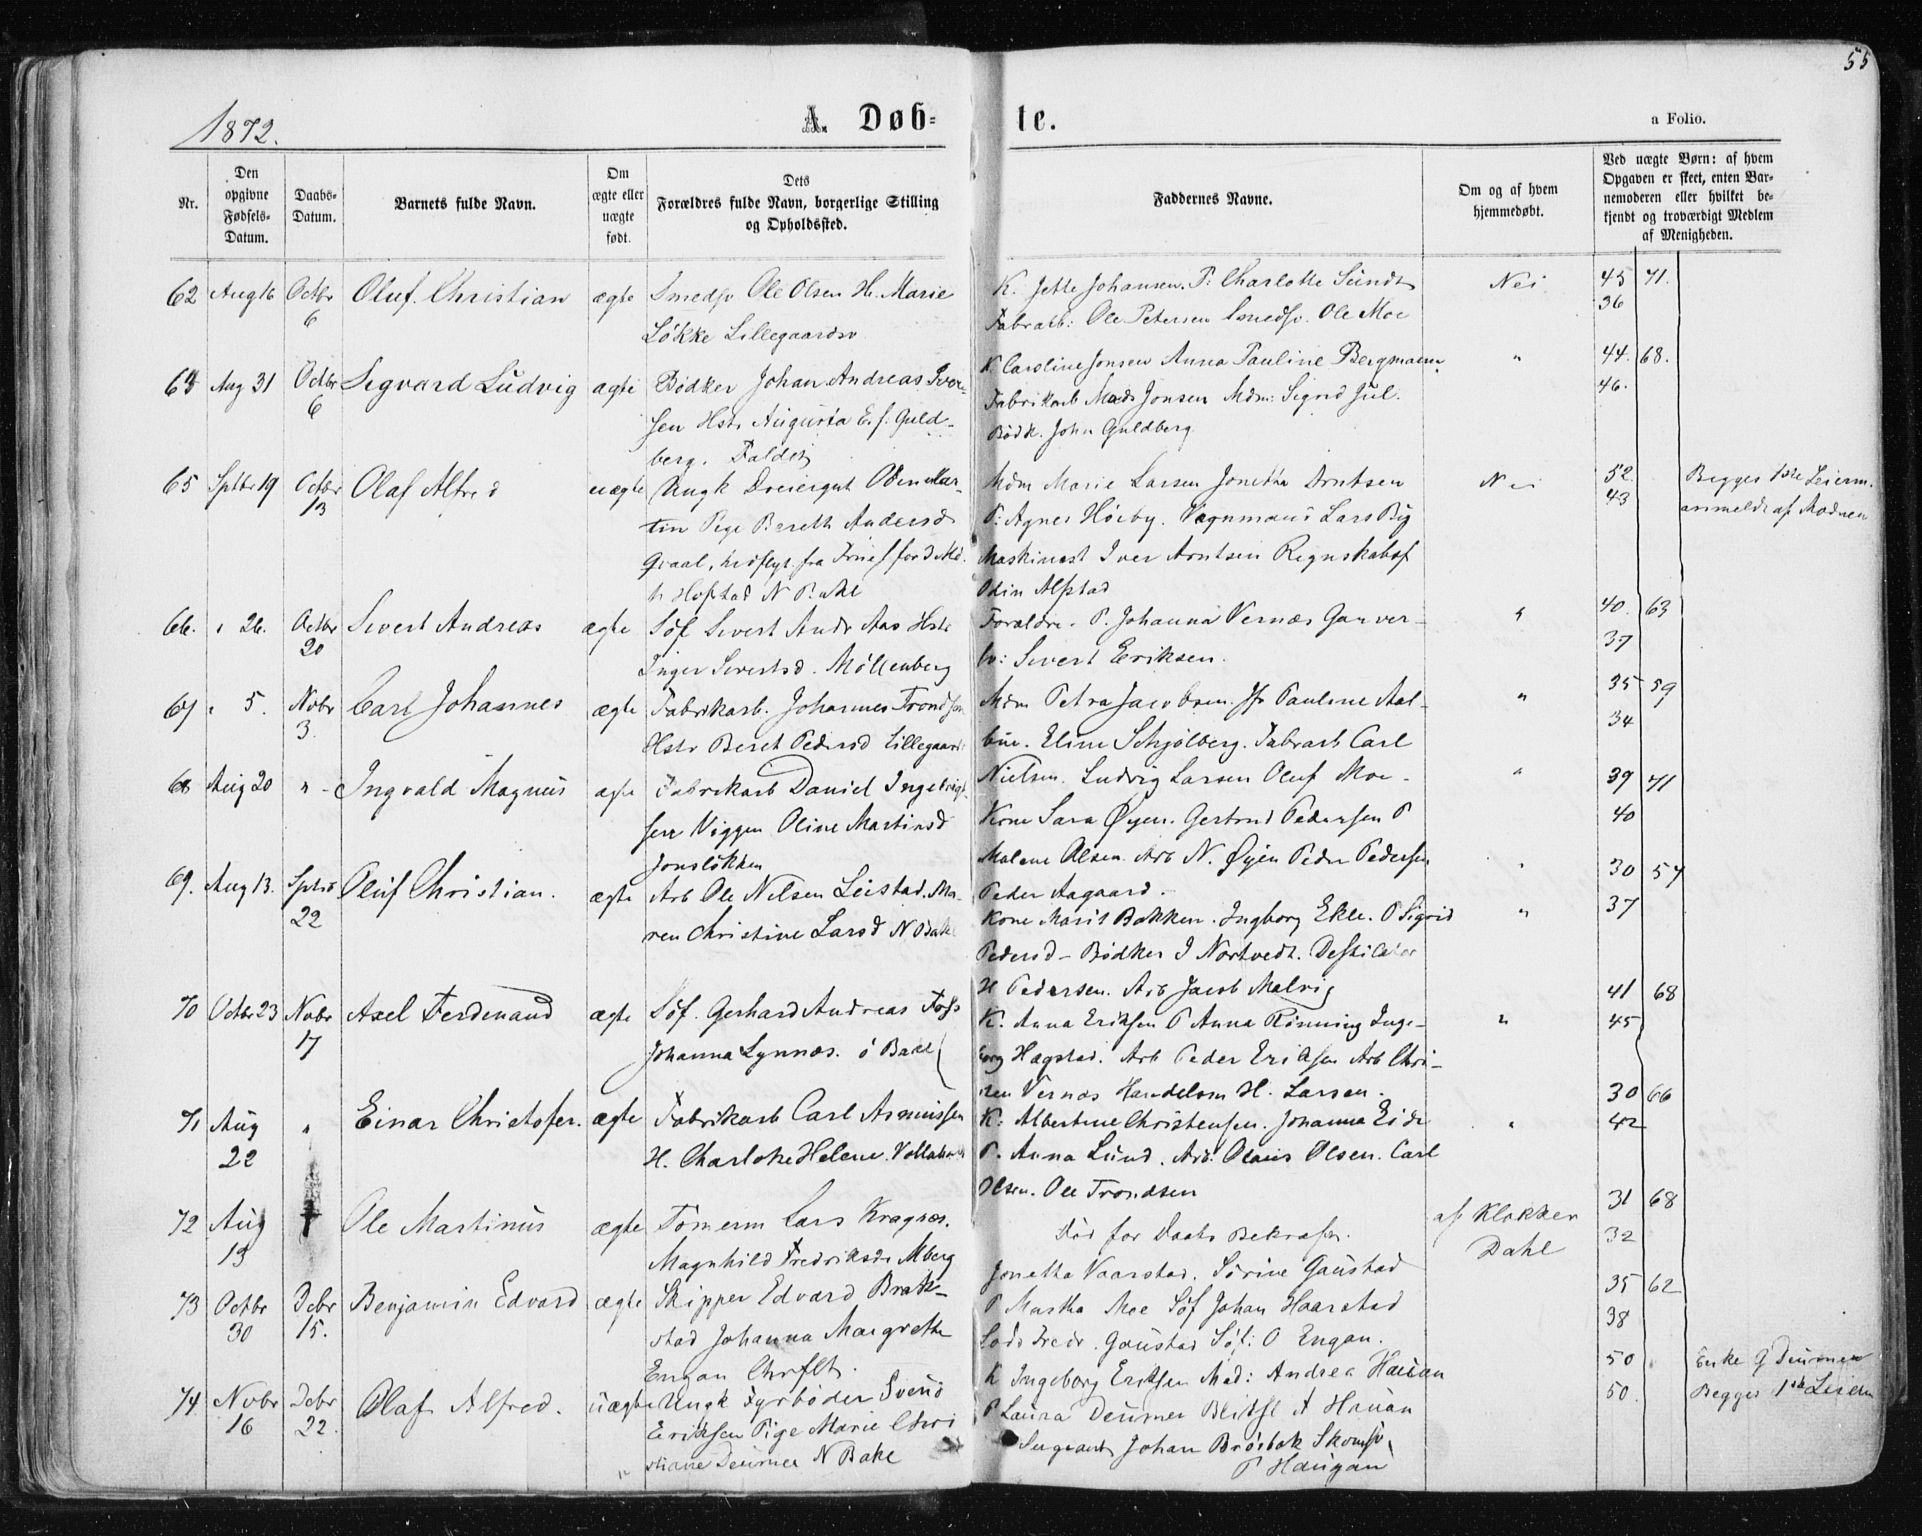 55
1872.
A. Døb-
te.
a Folio.
Nr.
Den opgivne Fødsels-Datum.
Daabs-Datum.
Barnets fulde Navn.
Om ægte eller uægte født.
Dets Forældres fulde Navn, borgerlige Stilling og Opholdssted.
Faddernes Navne.
Om og af hvem hjemmedøbt.
Ved uægte Børn: af hvem Opgaven er skeet, enten Barnemoderen eller hvilket bekjendt og troværdigt Medlem af Menigheden.
62 Aug 16 Octbr 6 Oluf Christian ægte Smedsv Ole Olsen H. Marie
Løkke Lillegaardsv
K. Jette Johansen. P: Charlotte Sundt Nei 45 71.
Fabrarb: Ole Petersen Smedsv. Ole Moe 36
63 Aug 31 Octbr 6 Sigvard Ludvig ægte Bødker Johan Andreas Iver-
sen Hstr Augusta E. f. Guld-
berg.
K Caroline Jonsen Anna Pauline Bergmann " 44. 68.
Fabrikarb Mads Jonsen Mdm: Sigrid Jul. 46.
Bødk. John Guldberg
65 Sptbr 19 Octbr 13 Olaf Alfred uægte Ungk Dreiergut Odin Mar-
tin Pige Bereth Andersd
Graal, indflyt. fra
Hofstad N Bakl
Mdm Marie Larsen Jonetta Arntsen Nei 52 Begges 1ste Leierm.
P: Agnes Høeby. Vognmand Lars By 43 anmeldt af Modren
Maskinist Iver Arntsen Regnskabsf
Odin Alstad
66. " 26. Octbr 20 Sivert Andreas ægte Søf Sivert Andr Aas Hstr
Inger Sivertsd. Møllenberg
Forældre. P. Johanna Vernæs Garver- " 40. 63
sv: Sivert Eriksen. 37
67 " 5. Novbr 3. Carl Johannes ægte Fabrikarb. Johannes Trondsen
Hstr Beret Pedersd Lillegaards
Mdm Petra Jacobsen. Jfr Pauline Aal- " 35 59
bue. Eline Schjølberg. Fabrarb Carl 34
Nielsen. Ludvig Larsen Oluf Moe.
68 Aug 20 " Ingvald Magnus ægte Fabrikarb Daniel Ingebrigt-
sen Viggen Oline Martinsd
Jonsløkken
" 39 71
Kone Sara Øyen. Gertrud Pedersen P 40
Malene Olsen. Arb N. Øyen Peder Pedersen
Peder Aagaard.
69. Aug 13. Sptbr 22 Oluf Christian. ægte Arb Ole Nilsen Leistad. Ma-
ren Christine Larsd N Bakl
" 30 57
Kone Marit Bakken. Ingborg Ekle. P Sigrid " 37
Pedersd - Bødker I Nortvedt. Destilator
H Pedersen. Arb Jacob Malvig
70 Octbr 23 Novbr 17 Axel Ferdinand ægte Søf. Gerhard Andreas Foss
Johanna Lynnæs. ø Bakl
41 68
K. Anna Eriksen P Anna Rønning Inge- " 45
borg Hagstad. Arb Peder Eriksen Arb Chri-
sten Vernæs Handelsm H. Larsen.
71 Aug 22 " Einar Christofer. ægte Fabrikarb Carl Asmussen
H. Charlotte Helene
30 66
K: Albertine Christensen. Johanna Eide " 42
P. Anna Lund. Arb. Olaus Olsen. Carl
Olsen. Ole Trondsen
72 Aug 13 † Ole Martinus ægte Tømerm Lars Kragnæs.
Magnhild Fredriksdr Mberg
Død før Daabs Bekræft. af Klokker Dahl 31 68
32
73 Octbr 30 Dcbr 15. Benjamin Edvard ægte Skipper Edvard Brak-
stad Johanna Margrethe
Engan Chrflt.
Jonetta Vaarstad. Sørine Gaustad 35 62
P Martha Moe Søf Johan Haarstad 38
Lods Fredr. Gaustad Søf: O Engan.
74 Novbr 16 Dcbr 22. Olaf Alfred. uægte Ungk Fyrbøder Svend
Eriksen Pige Marie Chri
stiane Deumer N Bakl
K Ingeborg Eriksen Mad: Andrea Hauan 50 Enke G Deumer
P Laura Deumer A Hauan 50. Begges 1ste Leierm
Sergeant Johan Brøsbak Skomsv.
P Haugan